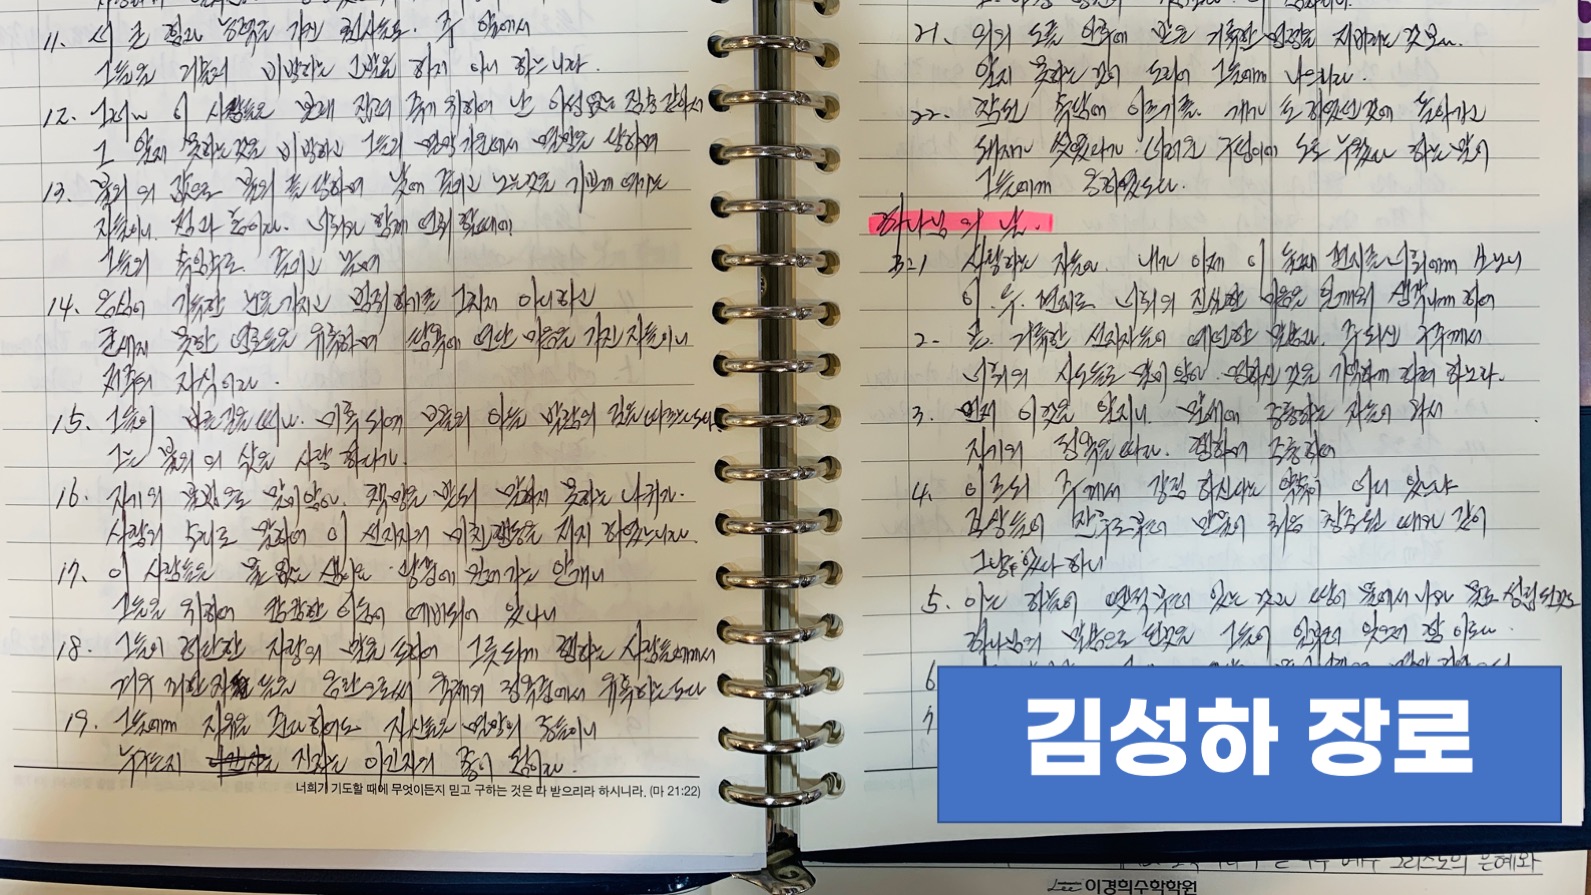 11. 더 큰 힘과 능력을 가진 천사들도 주 앞에서
그들을 거슬러 비방하는 고발을 하지 아니 하느니라.
12. 그러나 이 사람들은 본래 잡혀 죽기 위하여 난 이성 없는 짐승 같아서
그 알지 못하는 것을 비방하고 그들의 멸망 가운데서 멸망을 당하며
13. 불의의 값으로 불의를 당하며 낮에 즐기고 노는것을 기쁘게 여기는
자들이니 점과 흠이라. 너희와 함께 연회할때에
그들의 속임수로 즐기고 놀며
14. 음심이 가득한 눈을 가지고 범죄하기를 그치지 아니하고
굳세지 못한 영혼들을 유혹하며 탐욕에 연단된 마음을 가진 자들이니
저주의 자식이라.
15. 그들이 바른길을 떠나 미혹되어 브올의 아들 발람의 길을 따르는도다
그는 불의의 삯을 사랑하다가
16. 자기의 불법으로 말미암아 책망을 받되 말하지 못하는 나귀가
사람의 소리로 말하여 이 선지자의 미친 행동을 저지하였느니라.
17. 이 사람들은 물 없는 샘이요 광풍에 밀려가는 안개니
그들을 위하여 캄캄한 어둠이 예비되어 있나니
18. 그들이 허탄한 자랑의 말을 토하며 그릇되게 행하는 사람들에게서
겨우 피한 자들을 음란으로써 육체의 정욕중에서 유혹하는도다
19. 그들에게 자유를 준다하여도 자신들은 멸망의 종들이니
누구든지 진자는 이긴자의 종이 됨이라.
너희가 기도할 때에 무엇이든지 믿고 구하는 것은 다 받으리라 하시니라. (마 21:22)
21. 의의 도를 안후에 받은 거룩한 명령을 저버리는 것보다
알지 못하는 것이 도리어 그들에게 나으니라.
22. 참된 속담에 이르기를 개가 그 토하였던것에 돌아가고
돼지가 씻었다가 더러운 구덩이에 도로 누웠다 하는 말이
그들에게 응하였도다.
하나님의 날.
3:1 사랑하는 자들아 내가 이제 이 둘째 편지를 너희에게 쓰노니
이 두 편지로 너희의 진실한 마음을 일깨워 생각나게 하여
2. 곧 거룩한 선지자들이 예언한 말씀과 주되신 구주께서
너희의 사도들로 말미암아 명하신 것을 기억하게 하려 하노라.
3. 먼저 이것을 알지니 말세에 조롱하는 자들이 와서
자기의 정욕을 따라 행하며 조롱하여
4. 이르되 주께서 강림하신다는 약속이 어디 있느냐
조상들이 잔후로부터 만물이 처음 창조될 때와 같이
그냥 있다 하니
5. 이는 하늘이 옛적부터 있는 것과 땅이 물에서 나와 물로 성립된것도
하나님의 말씀으로 된것을 그들이 일부러 잊으려 함이로다.
6.
7.
김성하 장로
그리스도의 은혜와
Lee 이경희수학학원